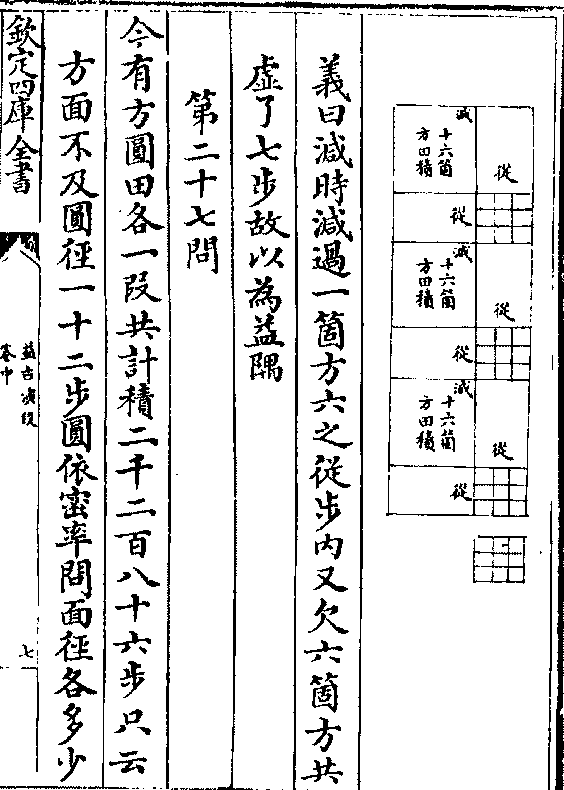 減
十六箇
方田積
從
從
減
十六箇
方田積
從
從
減
十六箇
方田積
從
從
義曰減時減過一箇方六之從步内又欠六箇方共
虛了七步故以為益隅
第二十七問
今有方圓田各一段共計積二千二百八十六步只云
方面不及圓徑一十二步圓依宻率問面徑各多少
欽定四庫全書
益古演段
卷中
七